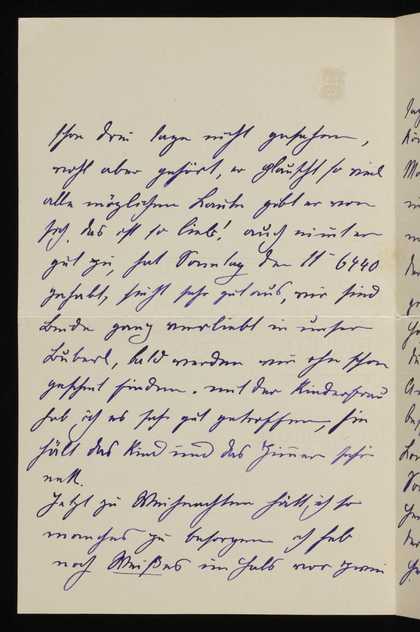 schon drei Tage nicht gesehen,
wohl aber gehört, er plauscht so viel
alle möglichen Laute gibt er von
sich, das ist so lieb! auch nimmt er
gut zu, hat Sonntag den 11ten 6440
gehabt, sieht sehr gut aus, wir sind
Beide ganz verliebt in unser
Buberl, bald werden wir ihn schon
gescheit finden. mit der Kinderfrau
hab ich es sehr gut getroffen, sie
hält das Kind und das Zimmer sehr
nett.
Jetzt zu Weihnachten hätt ich so
manches zu besorgen ich hab
noch Weißes im Hals vor zwei